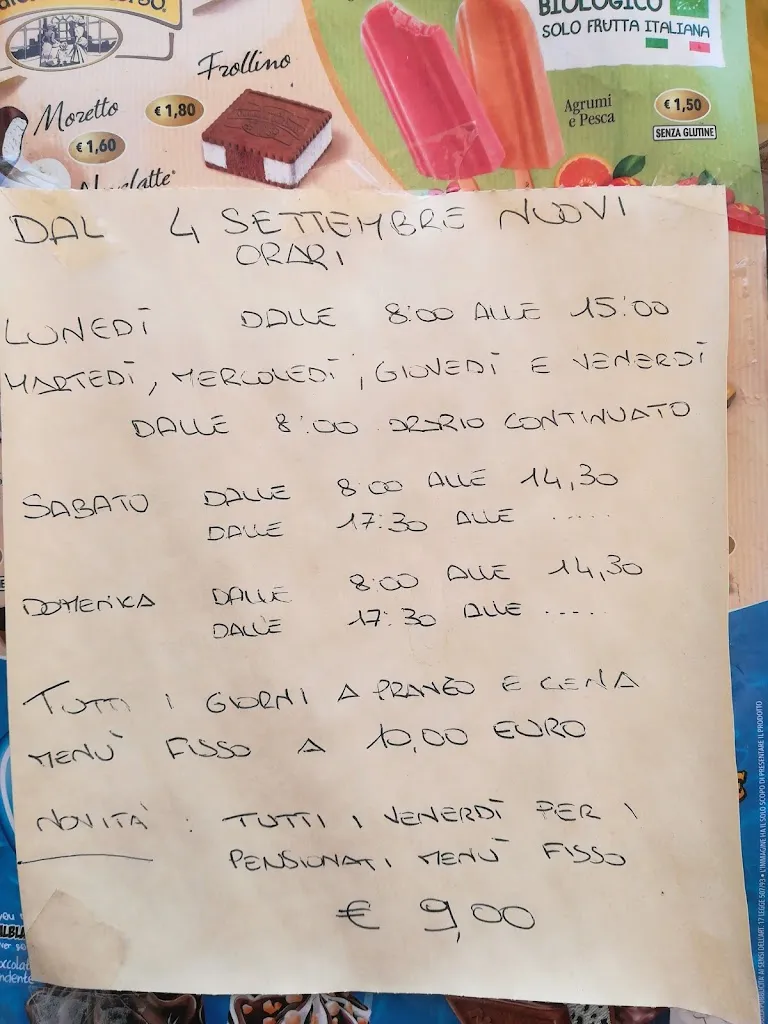 BIOLOGICO
SOLO FRUTTA ITALIANA
Frollino
Moretto
€ 1,80
€ 1,60
Agrumi
e Pesca
€ 1,50
SENZA GLUTINE
DAL 4 SETTEMBRE NUOVI
ORARI
LUNEDÌ DALLE 8:00 ALLE 15:00
MARTEDÌ, MERCOLEDÌ, GIOVEDÌ E VENERDÌ
DALLE 8:00 ORARIO CONTINUATO
SABATO DALLE 8:00 ALLE 14,30
DALLE 17:30 ALLE .....
DOMENICA DALLE 8:00 ALLE 14,30
DALLE 17:30 ALLE .....
TUTTI I GIORNI A PRANZO E CENA
MENÙ FISSO A 10,00 EURO
NOVITÀ : TUTTI I VENERDÌ PER I
PENSIONATI MENÙ FISSO
€ 9,00
L'IMMAGINE HA IL SOLO SCOPO DI PRESENTARE IL PRODOTTO